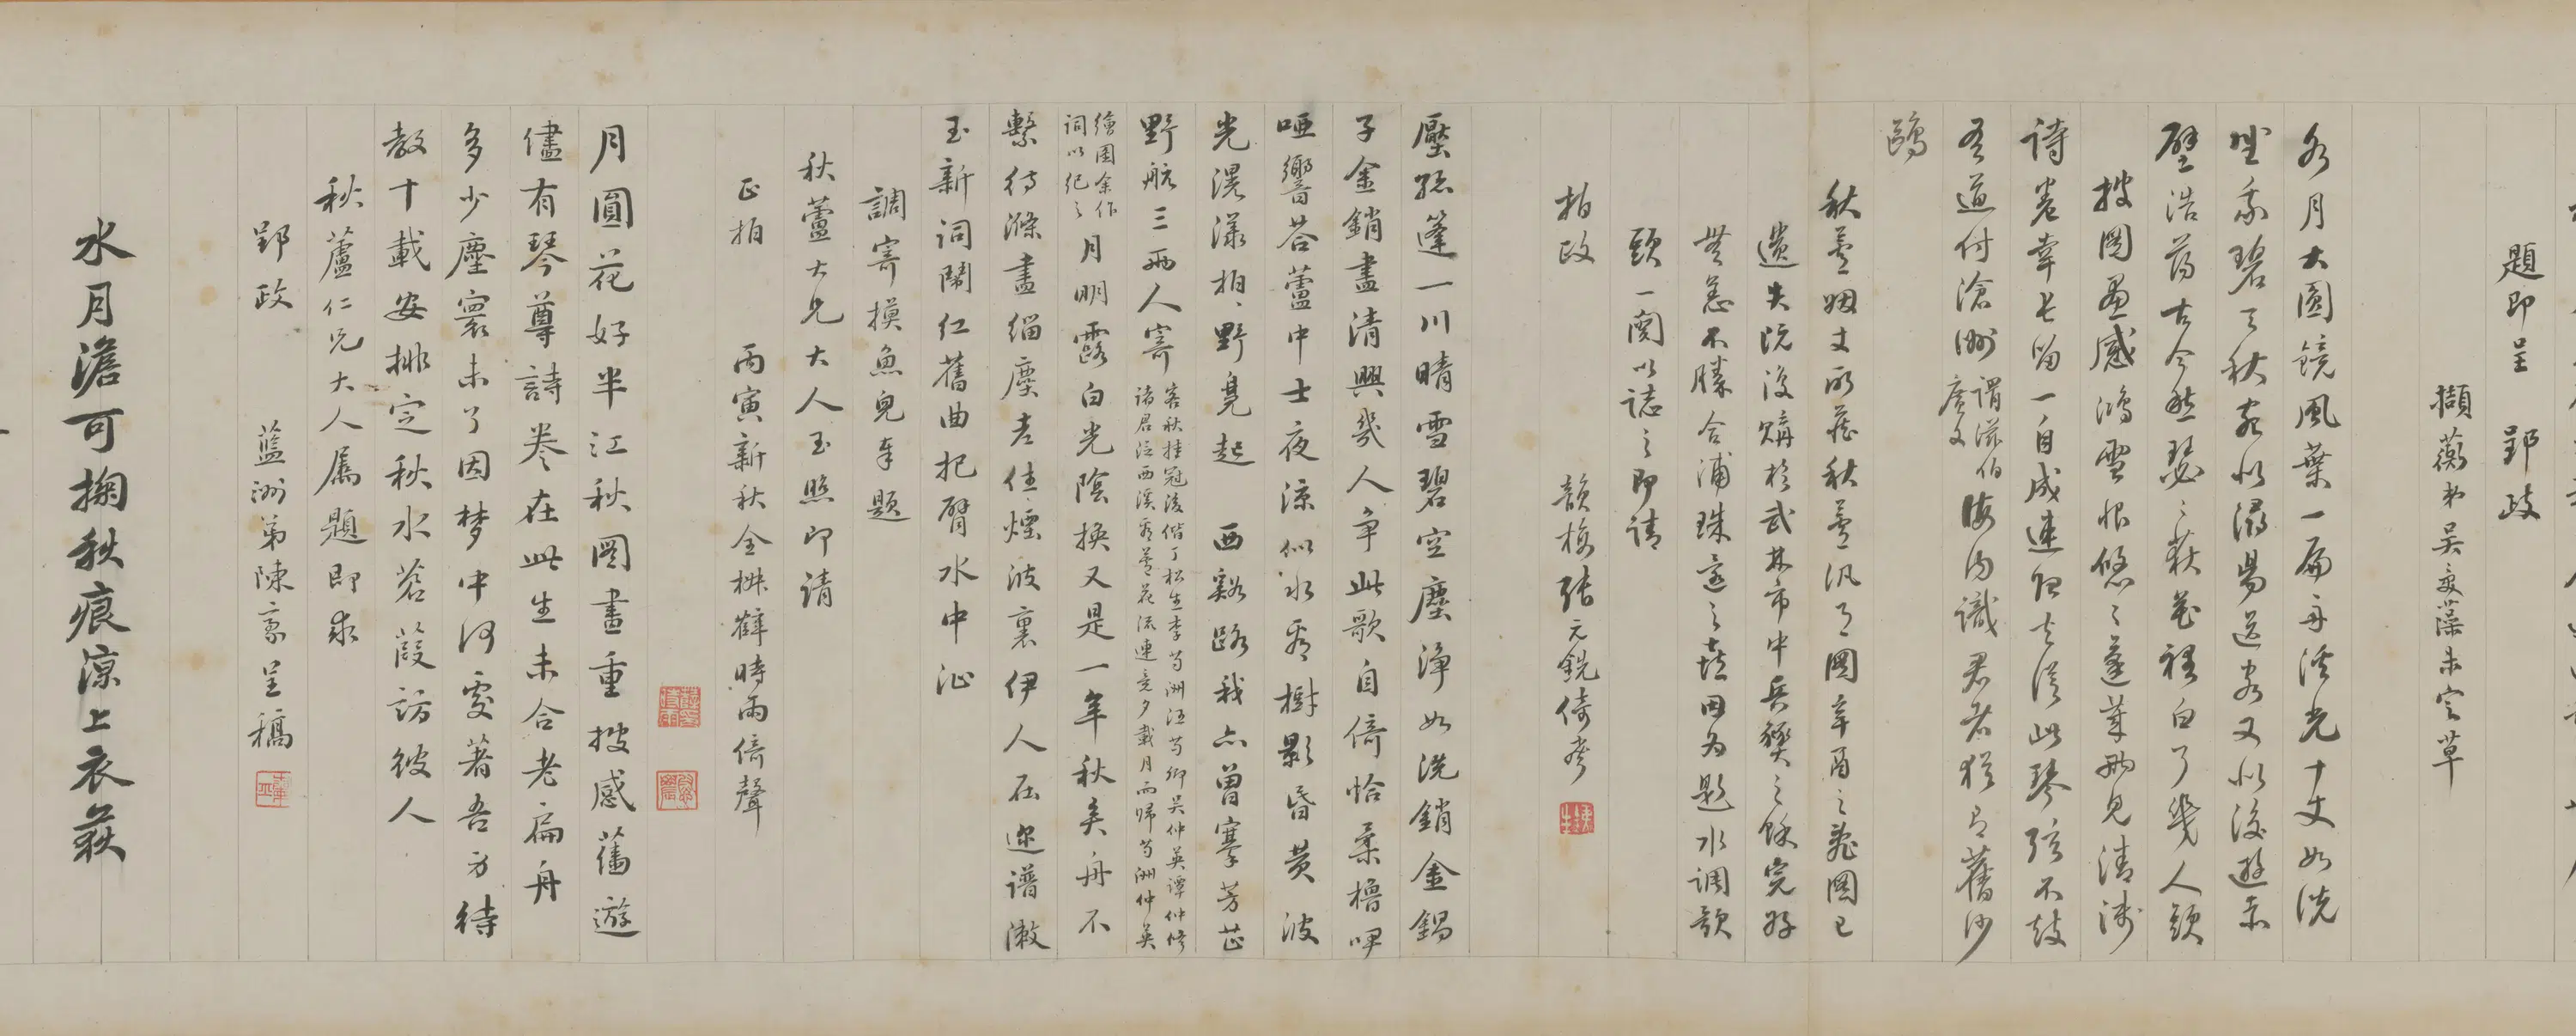 題即呈 郢政
擷蘅弟吴受藻未定草
水月大圓鏡風葉一扁舟溪光十丈如洗
坐我碧天秋宛似潯陽送客又似後遊赤
壁浩蕩古今愁瑟瑟荻花裡白了幾人頭
披圖畫感鴻雪恨悠悠蓬萊舟見清淺
詩卷幸長留一自成連仙去從此琴弦不鼓
吾道付滄洲謂滋伯廣文 後約識君者猶有舊沙
鷗
秋蘆姻丈所藏秋蘆汎月圖辛酉之亂圖已
遺失阮後購於武林市中兵燹之餘完好
無恙不勝合浦珠還之喜因為題水調歌
頭一闋以誌之即請
拍政 韻梅張元銑倚聲
壓孤篷一川晴雪碧空塵淨如洗銷金鍋
子金銷盡清興幾人爭此歌自倚恰柔櫓咿
啞響荅蘆中士夜涼似水看樹影昏黃波
光滉漾拍拍野鳧起 西谿路我亦曾搴芳芷
野航三兩人寄客秋挂冠後偕丁松生李芍洲江芍卿吴仲英譚仲修
諸君泛西溪看蘆花流連竟夕載月而歸芍洲仲英
繪圖余作
詞以紀之月明露白光陰換又是一年秋矣舟不
繫待滌盡緇塵老住煙波裏伊人在邇譜漱
玉新詞鬧紅舊曲把臂水中沚
調寄摸魚兒奉題
秋蘆大兄大人玉照即請
正拍 丙寅新秋仝楙䕶時雨倚聲
月圓花好半江秋圖畫重披感舊遊
儘有琴尊詩卷在此生未合老扁舟
多少塵寰未了因梦中何處著吾身待
教十載安排定秋水蒼葭訪彼人
秋蘆仁兄大人屬題即求
郢政 藍洲弟陳豪呈稿
水月澹可掬秋痕涼上衣荻